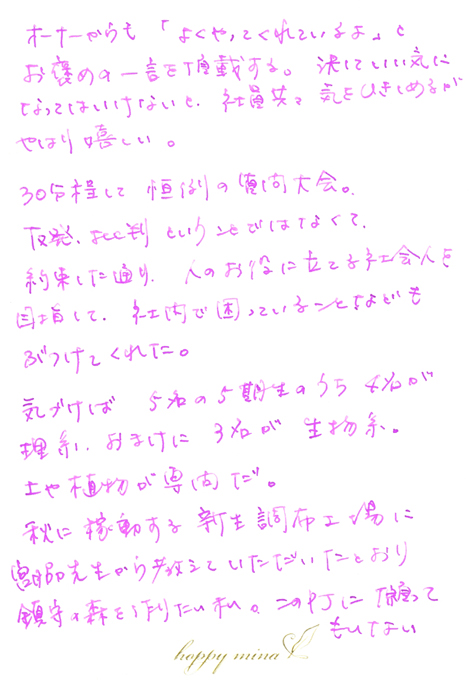 オーナーからも「よくやってくれているよ」と
お褒めの一言を頂戴する。決していい気に
なってはいけないと、社員共々気をひきしめるが
やはり嬉しい。
30分程して恒例の質問大会。
反発、批判ということではなくて、
約束した通り、人のお役に立てる社会人を
目指して、社内で困っていることなども
ぶつけてくれた。
気づけば 5名の5期生のうち 4名が
理系、おまけに 3名が 生物系。
土や植物が専門だ。
秋に稼動する 新生調布工場に
宮脇先生から教えていただいたとおり
鎮守の森を作りたい私。この灯に
もいない
happy mina